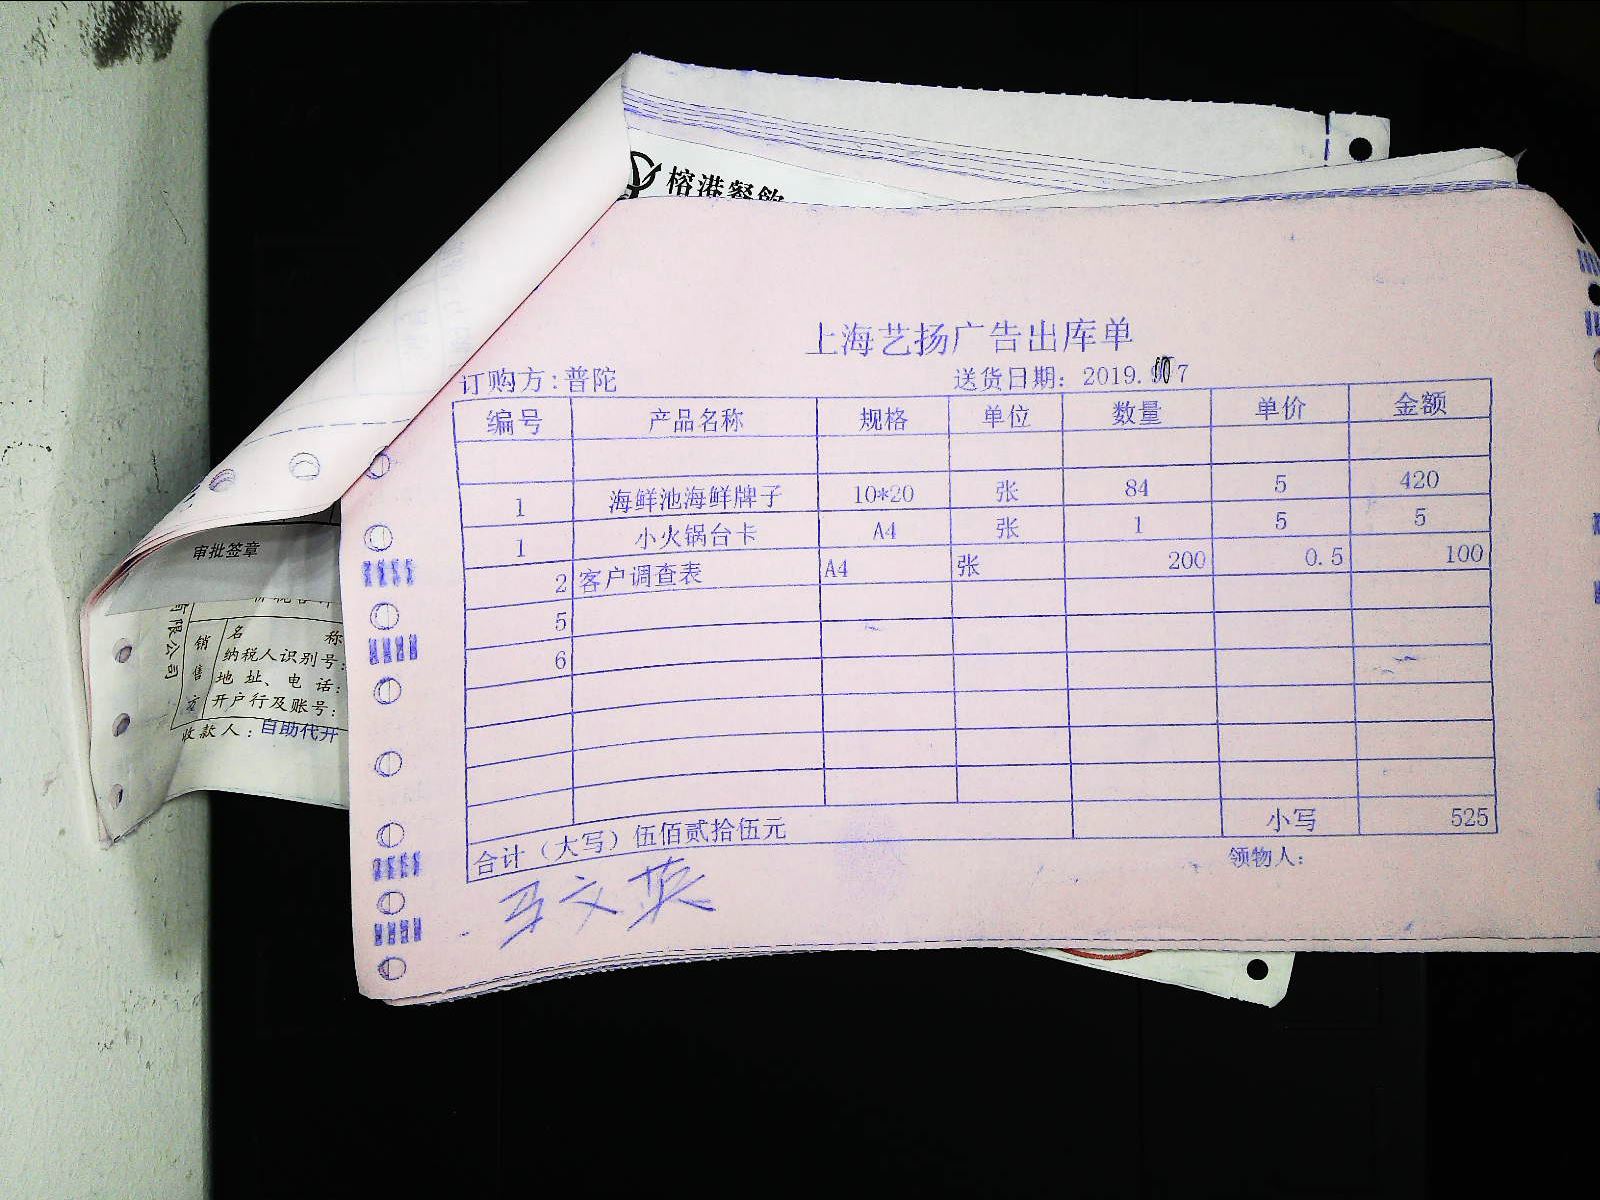 榕港餐飲
上海艺扬广告出库单
订购方:普陀 送货日期: 2019. 7
编号 产品名称 规格 单位 数量 单价 金额
1 海鲜池海鲜牌子 10*20 张 84 5 420
1 小火锅台卡 A4 张 1 5 5
2 客户调查表 A4 张 200 0.5 100
5
6
合计（大写）伍佰贰拾伍元 小写 525
领物人:
马文英
审批签章
有限公司
销售方
名 称
纳税人识别号:
地址、电话:
开户行及账号:
收款人:自助代开